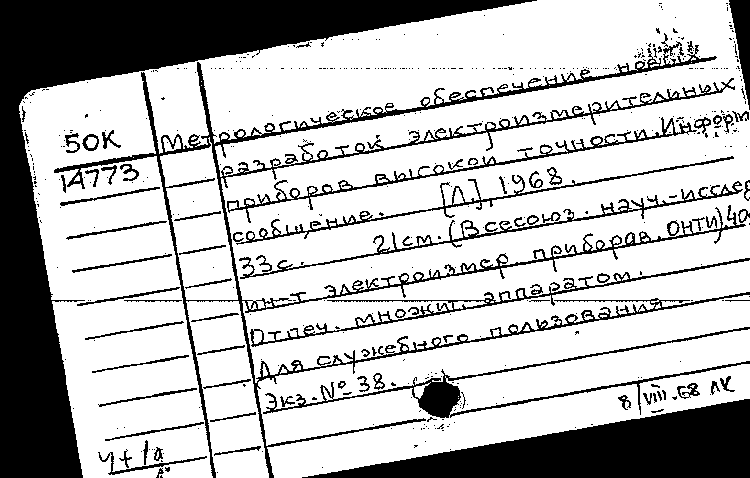 50К Метрологическое обеспечение новых
14773 разработок электроизмерительных
приборов высокой точности. Информ
сообщение. [Л.], 1968.
33с. 21см. (Всесоюз. науч.-исслед
ин-т электроизмер приборов. ОНТИ).
Отпеч. множит. аппаратом.
Для служебного пользования.
Экз. № 38.
8/VIII.68 ЛК